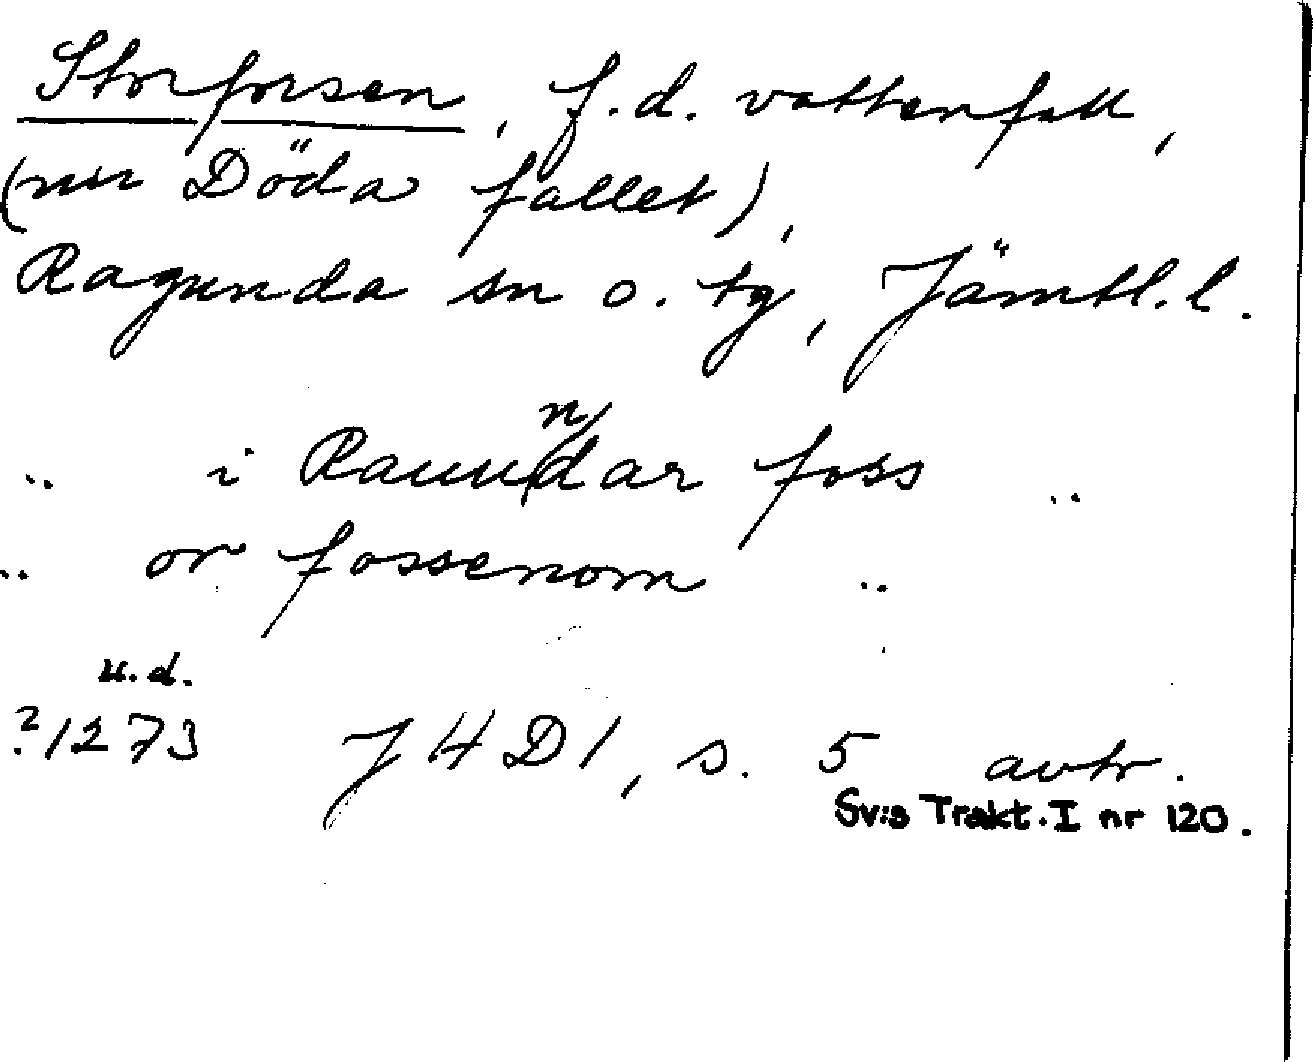 Storforsen, f.d. vattenfall,
(nu Döda fallet),
Ragunda sn o. tg, Jämtl.l.
n
.. i Raundar foss ..
.. or fossenom ..
u.d.
?1273 J H D 1, s. 5 avtr.
Sv:s Trakt. I nr 120.